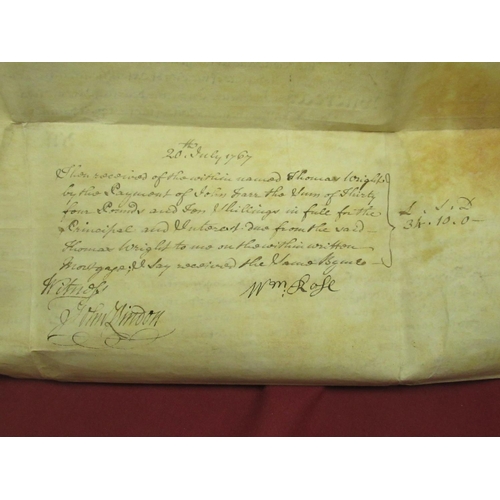 20th July 1767
Then received of the within named Thomas Wright
by the Payment of John Farr the Sum of Thirty
four Pounds and Ten Shillings in full for the
Principal and Interest due from the said
Thomas Wright to me on the within written
Mortgage; I say received the Same By me
£ S D
34. 10. 0
Witness
Wm. Rose
John Lindon